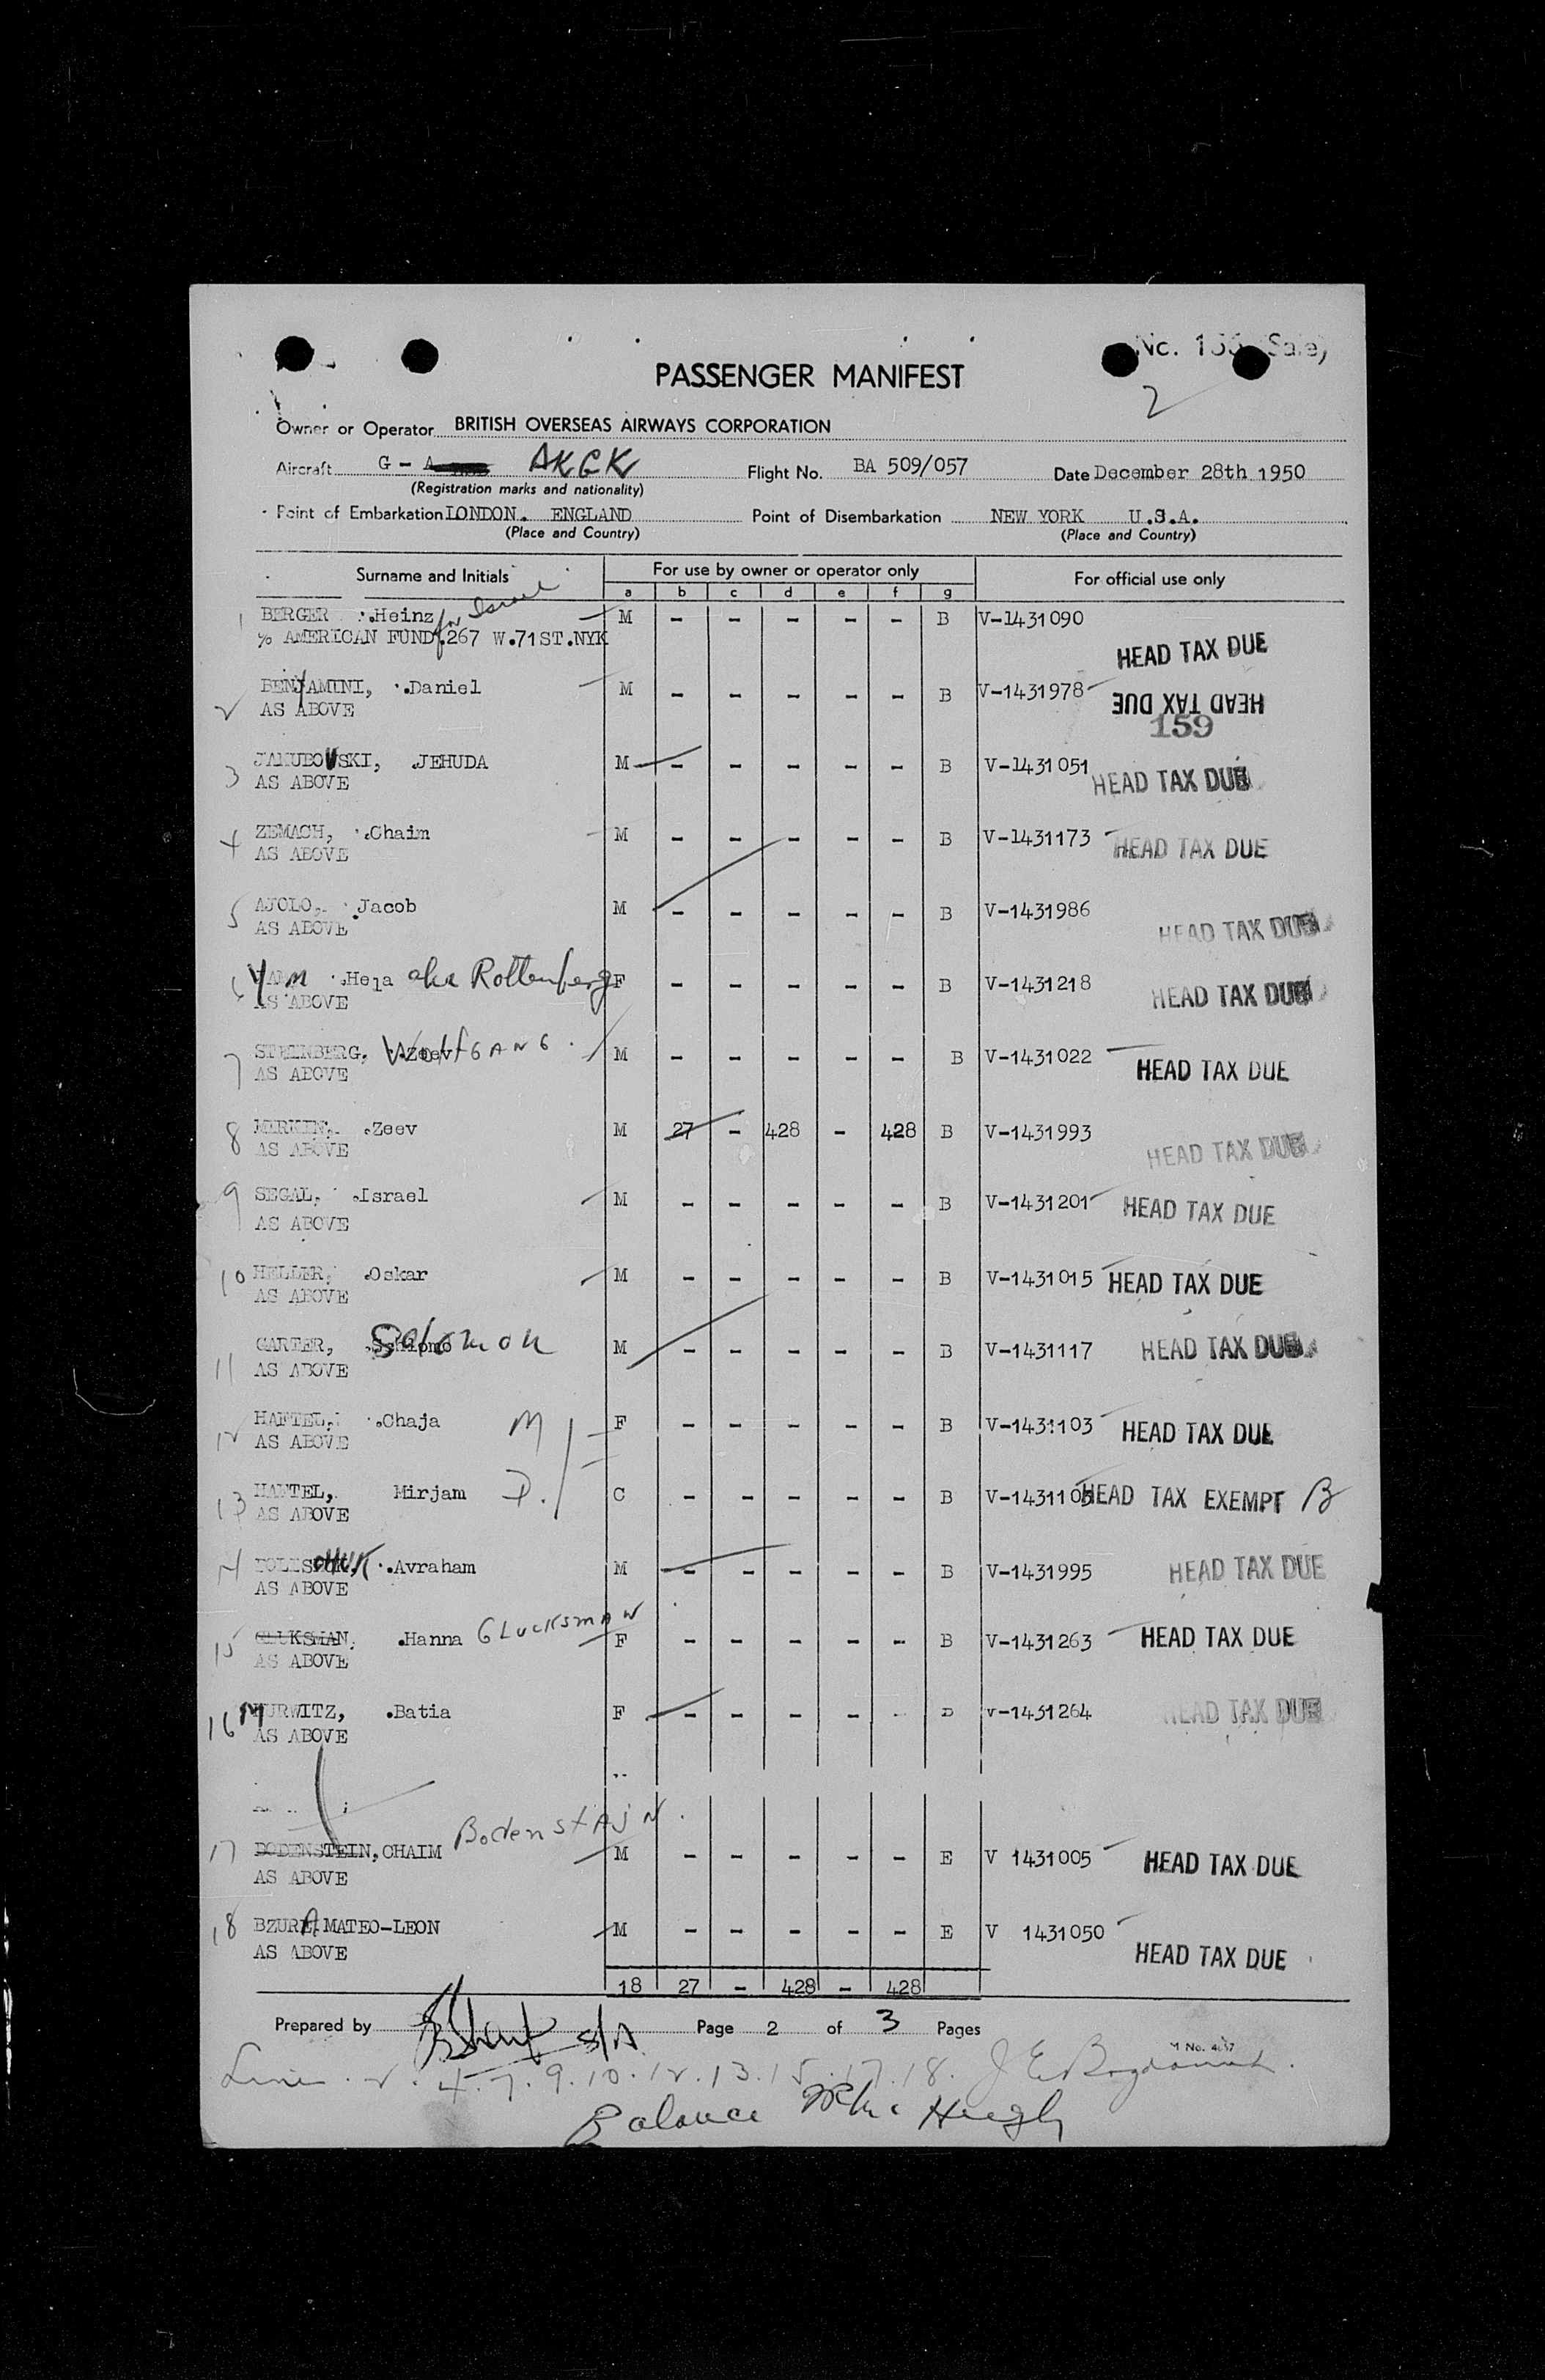 No. 
PASSENGER MANIFEST
2
Owner or Operator BRITISH OVERSEAS AIRWAYS CORPORATION
Aircraft G - A AKGK Flight No. BA 509/057 Date December 28th 1950
(Registration marks and nationality)
Point of Embarkation LONDON. ENGLAND Point of Disembarkation NEW YORK U.S.A.
(Place and Country) (Place and Country)
Surname and Initials For use by owner or operator only For official use only
a b c d e f g
1 BERGER .Heinz for Israel M - - - - - B V-1431090
% AMERICAN FUND.267 W.71ST.NYK HEAD TAX DUE
2 BENYAMINI, .Daniel M - - - - - B V-1431978 HEAD TAX DUE
AS ABOVE 159
3 JAKUBOWSKI, .JEHUDA M - - - - - B V-1431051 HEAD TAX DUE
AS ABOVE
4 ZEMACH, .Chaim M - - - - - B V-1431173 HEAD TAX DUE
AS ABOVE
5 AJOLO, .Jacob M - - - - - B V-1431986 HEAD TAX DUE
AS ABOVE
6 .Hela aka Rottenberg F - - - - - B V-1431218 HEAD TAX DUE
AS ABOVE
7 STEINBERG, .Zeev WOLFGANG M - - - - - B V-1431022 HEAD TAX DUE
AS ABOVE
8 MERKIN, .Zeev M 27 - 428 - 428 B V-1431993 HEAD TAX DUE
AS ABOVE
9 SEGAL, .Israel M - - - - - B V-1431201 HEAD TAX DUE
AS ABOVE
10 HELLER, .Oskar M - - - - - B V-1431015 HEAD TAX DUE
AS ABOVE
11 GARTER, Solomon M - - - - - B V-1431117 HEAD TAX DUE
AS ABOVE
12 HAFTEL, .Chaja M F - - - - - B V-1431103 HEAD TAX DUE
AS ABOVE
13 HAFTEL, Mirjam D. C - - - - - B V-1431105 HEAD TAX EXEMPT B
AS ABOVE
14 .Avraham M - - - - - B V-1431995 HEAD TAX DUE
AS ABOVE
15 GLUKSMAN, .Hanna GLUCKSMAN F - - - - - B V-1431263 HEAD TAX DUE
AS ABOVE
16 HURWITZ, .Batia F - - - - - B V-1431264 HEAD TAX DUE
AS ABOVE
17 BODENSTEIN, CHAIM BodenstAjN M - - - - - E V 1431005 HEAD TAX DUE
AS ABOVE
18 BZURA MATEO-LEON M - - - - - E V 1431050 HEAD TAX DUE
AS ABOVE
18 27 - 428 - 428
Prepared by S/A Page 2 of 3 Pages
Lines 2. 4. 7. 9. 10. 12. 13. 15. 17. 18.
Balance Hugh